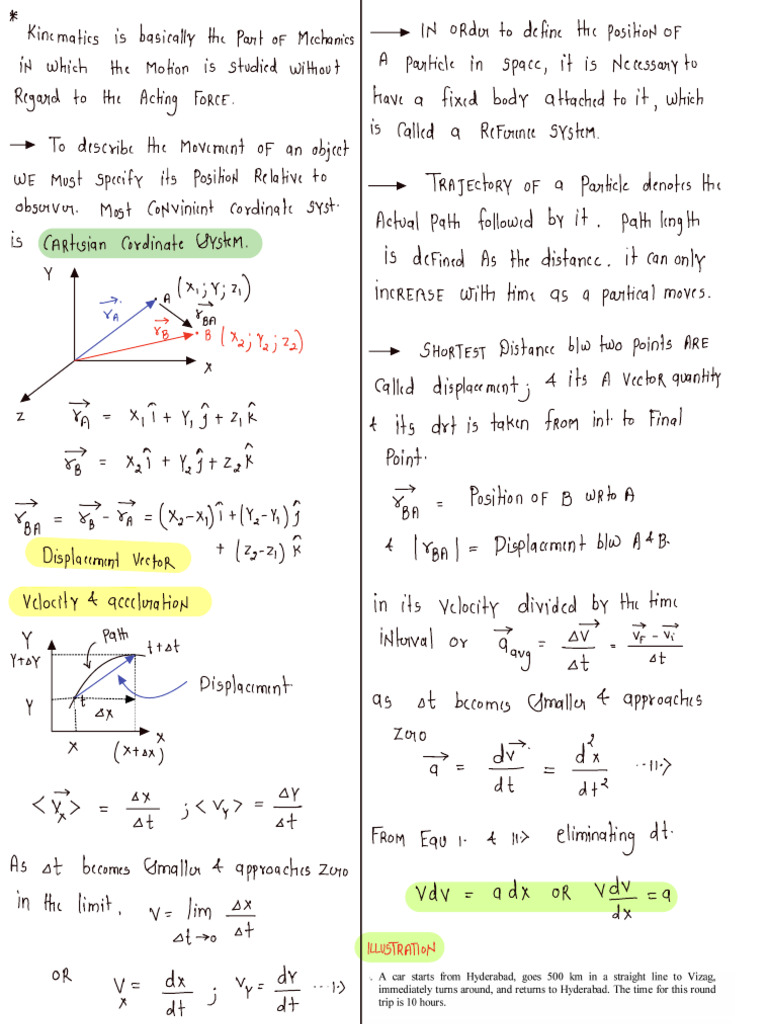 *
Kinematics is basically the Part OF Mechanics
iN which the Motion is studied without
Regard to the Acting FORCE.
→ To describe the Movement OF an object
WE Must specify its Position Relative to
observer. Most Convinient Cordinate Syst.
is Cartesian Cordinate System.
Y
A (x₁; y; z₁)
r⃗_A
r⃗_BA
r⃗_B
B (x₂; y₂; z₂)
X
Z
r⃗_A = x₁ î + y₁ ĵ + z₁ k̂
r⃗_B = x₂ î + y₂ ĵ + z₂ k̂
r⃗_BA = r⃗_B - r⃗_A = (x₂-x₁) î + (y₂-y₁) ĵ
+ (z₂-z₁) k̂
Displacement Vector
Velocity & acceleration
Y
Path
t+Δt
Y+ΔY
Displacement
Y
t
Δx
X
x
(x+Δx)
<v⃗_x> = Δx/Δt ; <v_y> = Δy/Δt
As Δt becomes Smaller & approaches zero
in the limit, V = lim Δt→0 Δx/Δt
OR V_x = dx/dt ; V_y = dy/dt ...1·)
→ IN ORder to define the Position OF
A Particle in space, it is Necessary to
have a fixed body attached to it, which
is Called a Reference System.
→ TRAJECTORY OF a Particle denotes the
Actual Path followed by it. Path length
is defined As the distance. it can only
inCREASE with time as a partical moves.
→ SHORTEST Distance b/w two points ARE
Called displacement; & its A vector quantity
& its drt is taken from int. to Final
Point.
r⃗_BA = Position OF B wrto A
& |r_BA| = Displacement b/w A & B.
in its Velocity divided by the time
interval or a⃗_avg = Δv⃗/Δt = (v⃗_F - v⃗_i)/Δt
as Δt becomes Smaller & approaches
Zero
a⃗ = dv⃗/dt = d²x/dt² ...11·)
From Equ 1· & 11·) eliminating dt.
Vdv = adx OR V dv/dx = a
ILLUSTRATION
. A car starts from Hyderabad, goes 500 km in a straight line to Vizag,
immediately turns around, and returns to Hyderabad. The time for this round
trip is 10 hours.